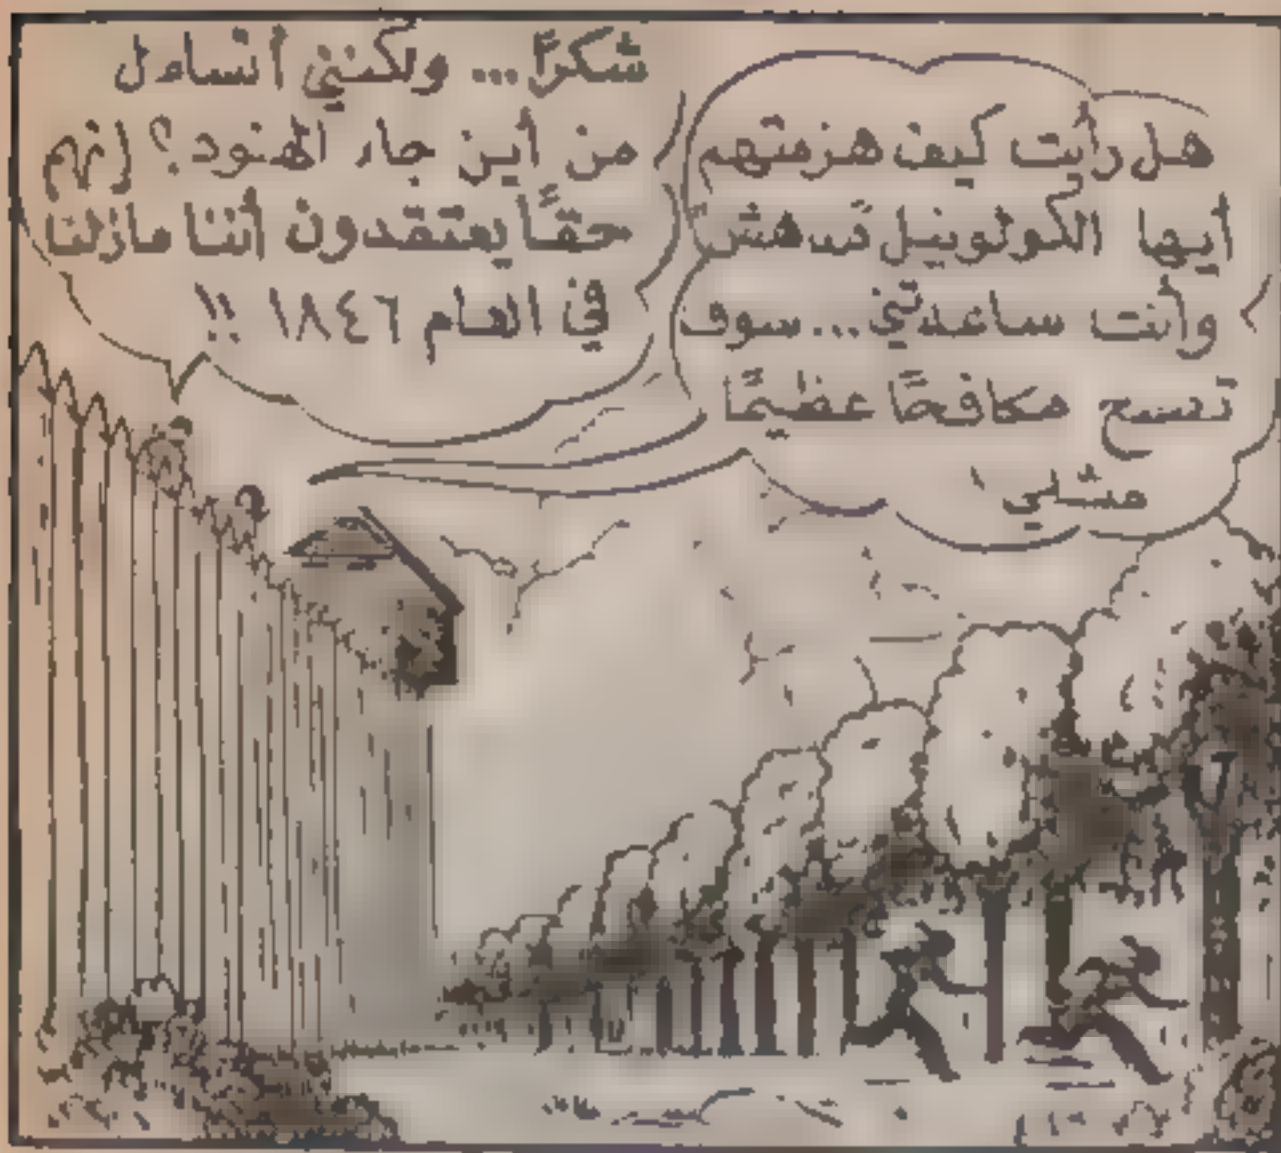 هل رأيت كيف هزمتهم
أيها الكولونيل تدهش
وأنت ساعدتني... سوف
تصبح مكافحًا عظيمًا
مثلي !
شكرًا... ولكنني أتساءل
من أين جاء الهنود؟ إنهم
حقًا يعتقدون أننا مازلنا
في العام ١٨٤٦ !!